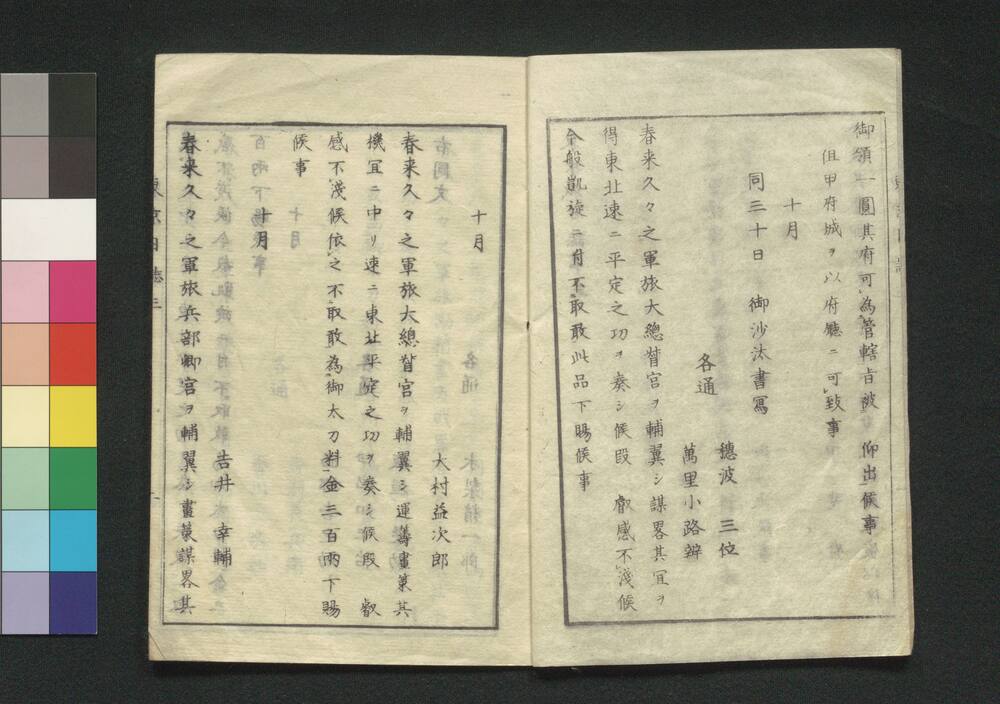 御領一圓其府可為管轄旨被　仰出候事
但甲府城ヲ以府廳ニ可致事
十月
同三十日　御沙汰書寫
各通
穗波　三位
萬里小路辨
春来久々之軍旅大總督宮ヲ輔翼シ謀畧其宜ヲ
得東北速ニ平定之功ヲ奏シ候段　叡感不淺候
今般凱旋ニ付不取敢此品下賜候事
十月
大村益次郎
春来久々之軍旅大總督宮ヲ輔翼シ運籌畫策其
機宜ニ中リ速ニ東北平定之功ヲ奏シ候段　叡
感不淺候依之不取敢為御太刀料金三百兩下賜
候事
十月
吉井　幸輔
春来久々之軍旅兵部卿宮ヲ輔翼シ畫策謀畧其
東京日誌三